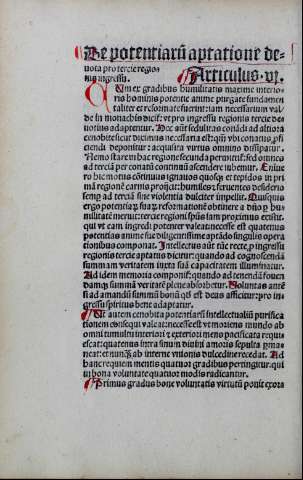 De potentiarū aptatione de-
uota pro tercie regio
nis ingressu. Articulus .vj.
CUm ex gradibus humilitatis maxime interio
ris hominis potentie anime purgate fundamen
taliter et reformate fuerint: iam necessarium val
de in monachis dicit: vt pro ingressu regionis tercie de-
uotius adaptentur. Nec
cenobite sicut diximus necessaria est: qui vbi conatus, p̄fi
ciendi deponitur: acquisita virtus omnino dissipatur.
Nemo stare in hac regione secunda permittit: sed omnes
ad terciam pro conatu continuo ascendere iubemur. Enim
vero hec mons continuus ignauos quosq; et tepidos in pri
mā regionē carnis proijcit: humiles & feruentes desiderio
semq; ad terciā sine violentia dulciter impellit. Quisquis
ergo potentiarū suarū reformationē obtinere a dn̄o p hu
militatē meruit: tercie regioni ipsius iam proximus existit.
qui vt eam ingredi potenter valeat: necesse est quatenus
potentias anime sue diligentissime aptādo singulis opera
tionibus componat. Intellectus aūt tūc recte, p ingressu
regionis tercie aptatus dicitur: quando ad cognoscendā
summam veritatem iuxta suā capacitatem illuminatur.
Ad idem memoria componit: quando ad tenendā fouen
damq; summā veritatē plene absorbetur. Voluntas autē
si ad amandū summū bonū qđ est deus afficitur: pro in-
gressu spiritus bene adaptatur.
Ut autem cenobita potentiarū intellectualiū purifica
tionem consequi valeat: necesse est vt moriens mundo ab
omni tumultu interiori & exteriori mens pacificata requi
escat: quatenus intra sinum diuini amoris sepulta pma-
neat: et nunq̄ ab interne vnionis dulcedine recedat. Ad
hanc requiem mentis quatuor gradibus pertingitur. qui
in bona voluntate quatuor modis radicantur.
Primus gradus bone voluntatis virtutū ponit exora